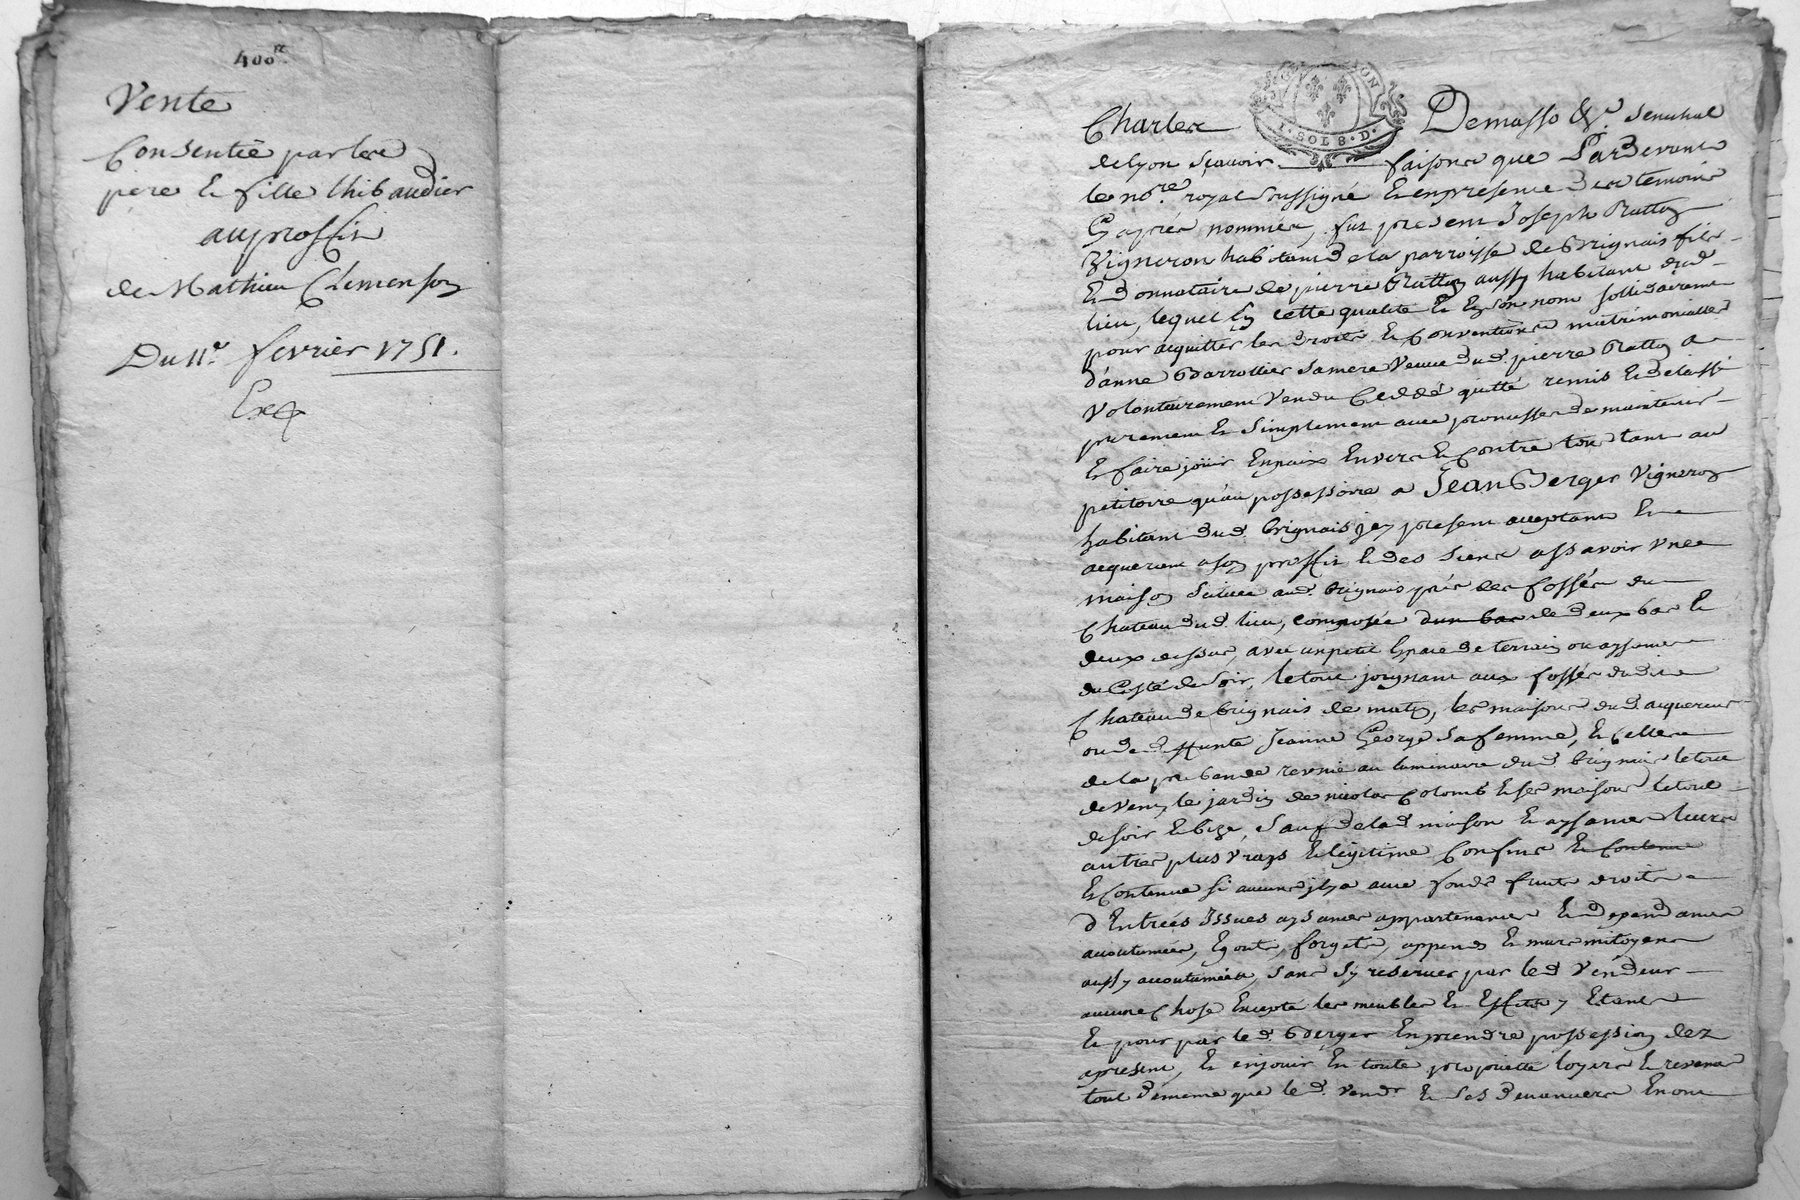 400ᵗᵗ
Vente
Consentie par les
pere et fille thibaudier
au proffit
de Mathieu Clemenson
Du 11ᵉ fevrier 1751.
Exp
I. SOL 8. D.
Charles Demasso &ᵃ Senechal
de lyon Scavoir faisons que Pardevant
le noʳᵉ royal Soussigné et en presence des temoins
Cy apres nommés, fut present Joseph Ratton
Vigneron habitant de la parroisse de Brignais fils
et donnataire de pierre Ratton aussy habitant dud.
lieu, lequel En cette qualité et En Son nom sollidairement
pour acquitter les droits et Conventions matrimonialles
d'anne Barrottier sa mere Veuve dud. pierre Ratton a
Volontairement Vendu Ceddé quitté remis et delaissé
purement et Simplement avec promesse de maintenir
et faire joüir En paix Envers et Contre tous tant au
petitoire qu'au possessoire a Jean Berger Vigneron
habitant dud. brignais jcy present acceptant et
acquerant a son proffit et des siens assavoir Une
maison Scituée aud. brignais près les fossés du
Chateau dud. lieu, composée d'un bas de deux bas et
deux dessus, avec un petit Espace de terrain ou aysance
du Costé de Soir, le tout joignant aux fossés dudit
Chateau de brignais de matin, les maisons dud. acquereur
ou de deffunte Jeanne George sa femme, et Celle
de la prebande revnie au luminaire dud. brignais le tout
de Vent, le jardin de nicolas Colomb et ses maisons le tout
de soir et bize, Sauf de lad. maison et aysances leurs
autres plus vrays et legitimes Confins et Contenue
et Contenue si aucuns jl y a avec fonds fruits droits
d'Entrées Issues aysances appartenances et dependances
accoutumées, Egouts, forgets, appends et murs mitoyens
aussy accoutumées, sans s'y reserver par led. Vendeur
aucune Chose Excepté les meubles et Effets y Etants
et pour par led. Berger En prendre possession dez
apresent, et en jouir En toute proprietté loyers et revenus
tout de meme que led. Vendr. et Ses devanciers En ont